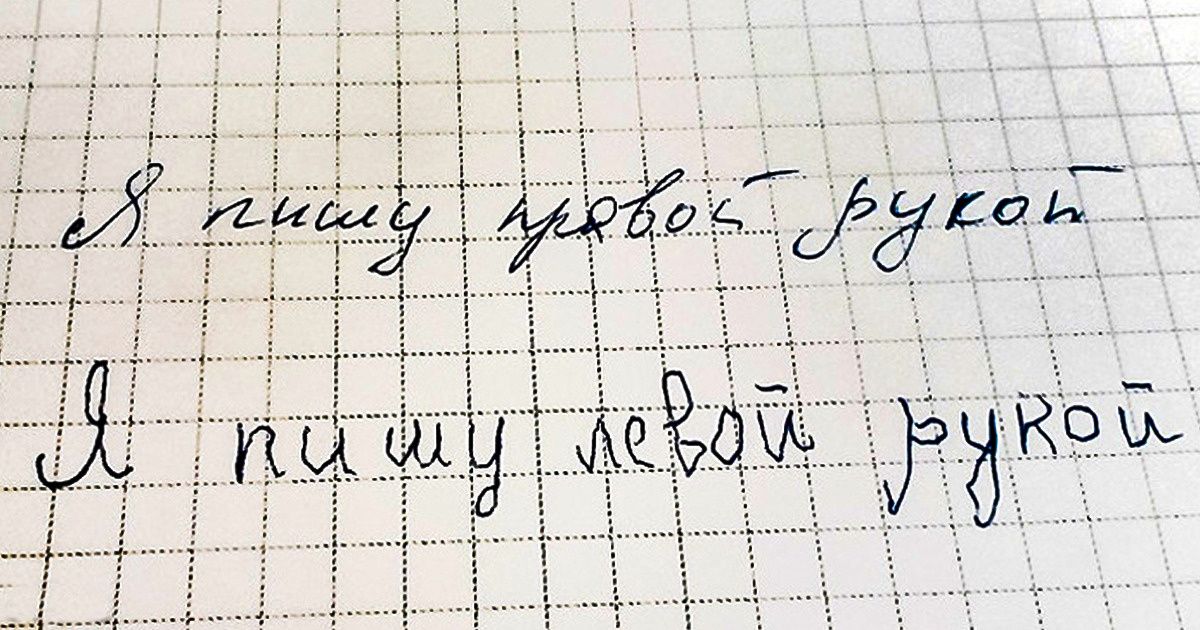 Я пишу правой рукой
Я пишу левой рукой